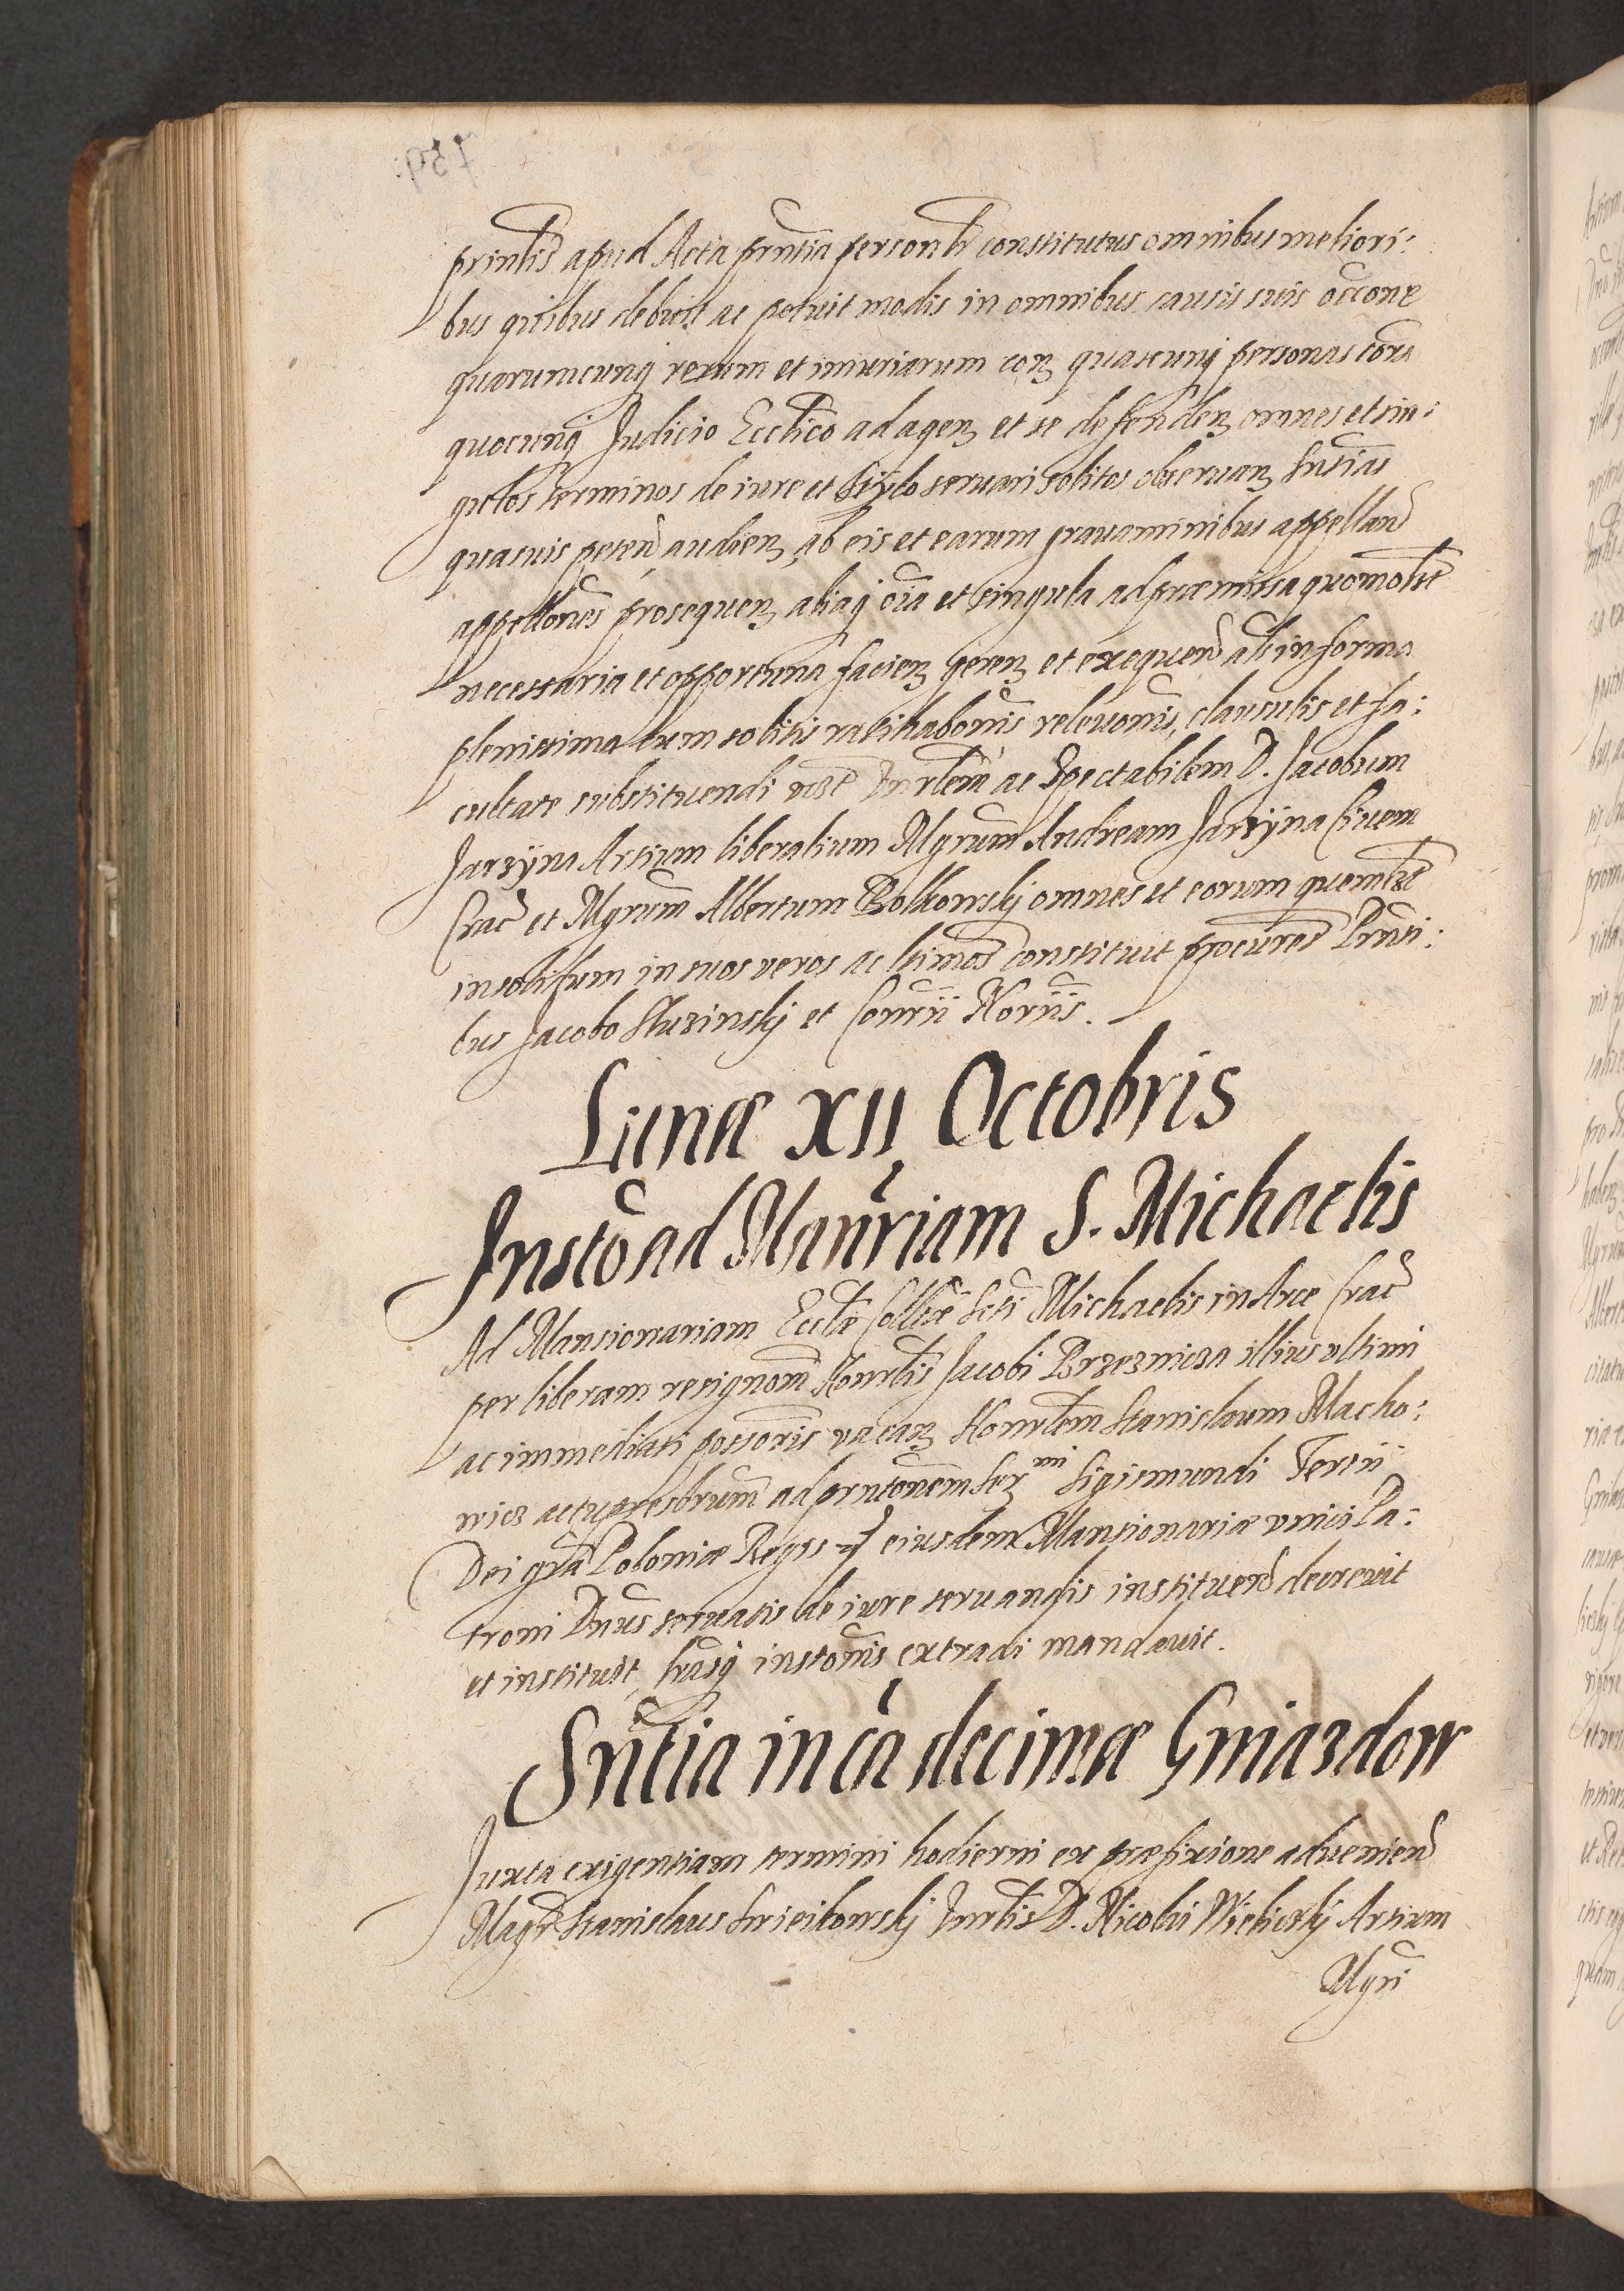 prinlis apud Acta prntia personlr constitutus omnibus meliori:
bus quibus debuit ac potuit modis in omnibus causis suis occone
quarumcunq rerum et iniuriarum con quascunq personas cora
quocunq Judicio Ecclico ad agen et se defenden omnes et sin:
gulos terminos de iure et stylo seruari solitos obseruan sntias
quasuis peten audien ab eis et earum grauaminibus appellan
appellones prosequen aliaq oia et singula ad præmissa quomolt
necessaria et opportuna facien geren et exequen als in forma
plenissima cum solitis ratihabonis releuonis, clausulis et fa:
cultate substituendi vzt Inrlem ac Spectabilem D. Jacobum
Jarzyna Artium liberalium Mgrum Andream Jarzyna Ciuem
Crac et Mgrum Albertum Bolkowskj omnes et eorum quemlzt
in solidum in suos veros ac ltimos constituit procures Prnti:
bus Jacobo Sluzinskj et Conrii Noriis.
Lunæ XII Octobris
Insto ad Manriam S. Michaelis
Ad Mansionariam Eccle Collte Scti Michaelis in Arce Crac
per liberam resignom Honrlis Jacobi Brzeznicza illius ultimi
ac immediati possoris vacan Honrlem Stanislaum Macho:
wicz actu presbrum ad prntonem Ser mi Sigismundi Tertii
Dei gra Poloniæ Regis eiusdem Mansionariæ vnici Pa:
troni Dnus seruatis de iure seruandis instituen decreuit
et instituit, lrasq instonis extradi mandauit.
Sntia in ca decimæ Gniazdow
Juxta exigentiam termini hodierni ex præfixione aduenien
Magr Stanislaus Inrlis D. Nicolai Wielickj Artium
Mgri